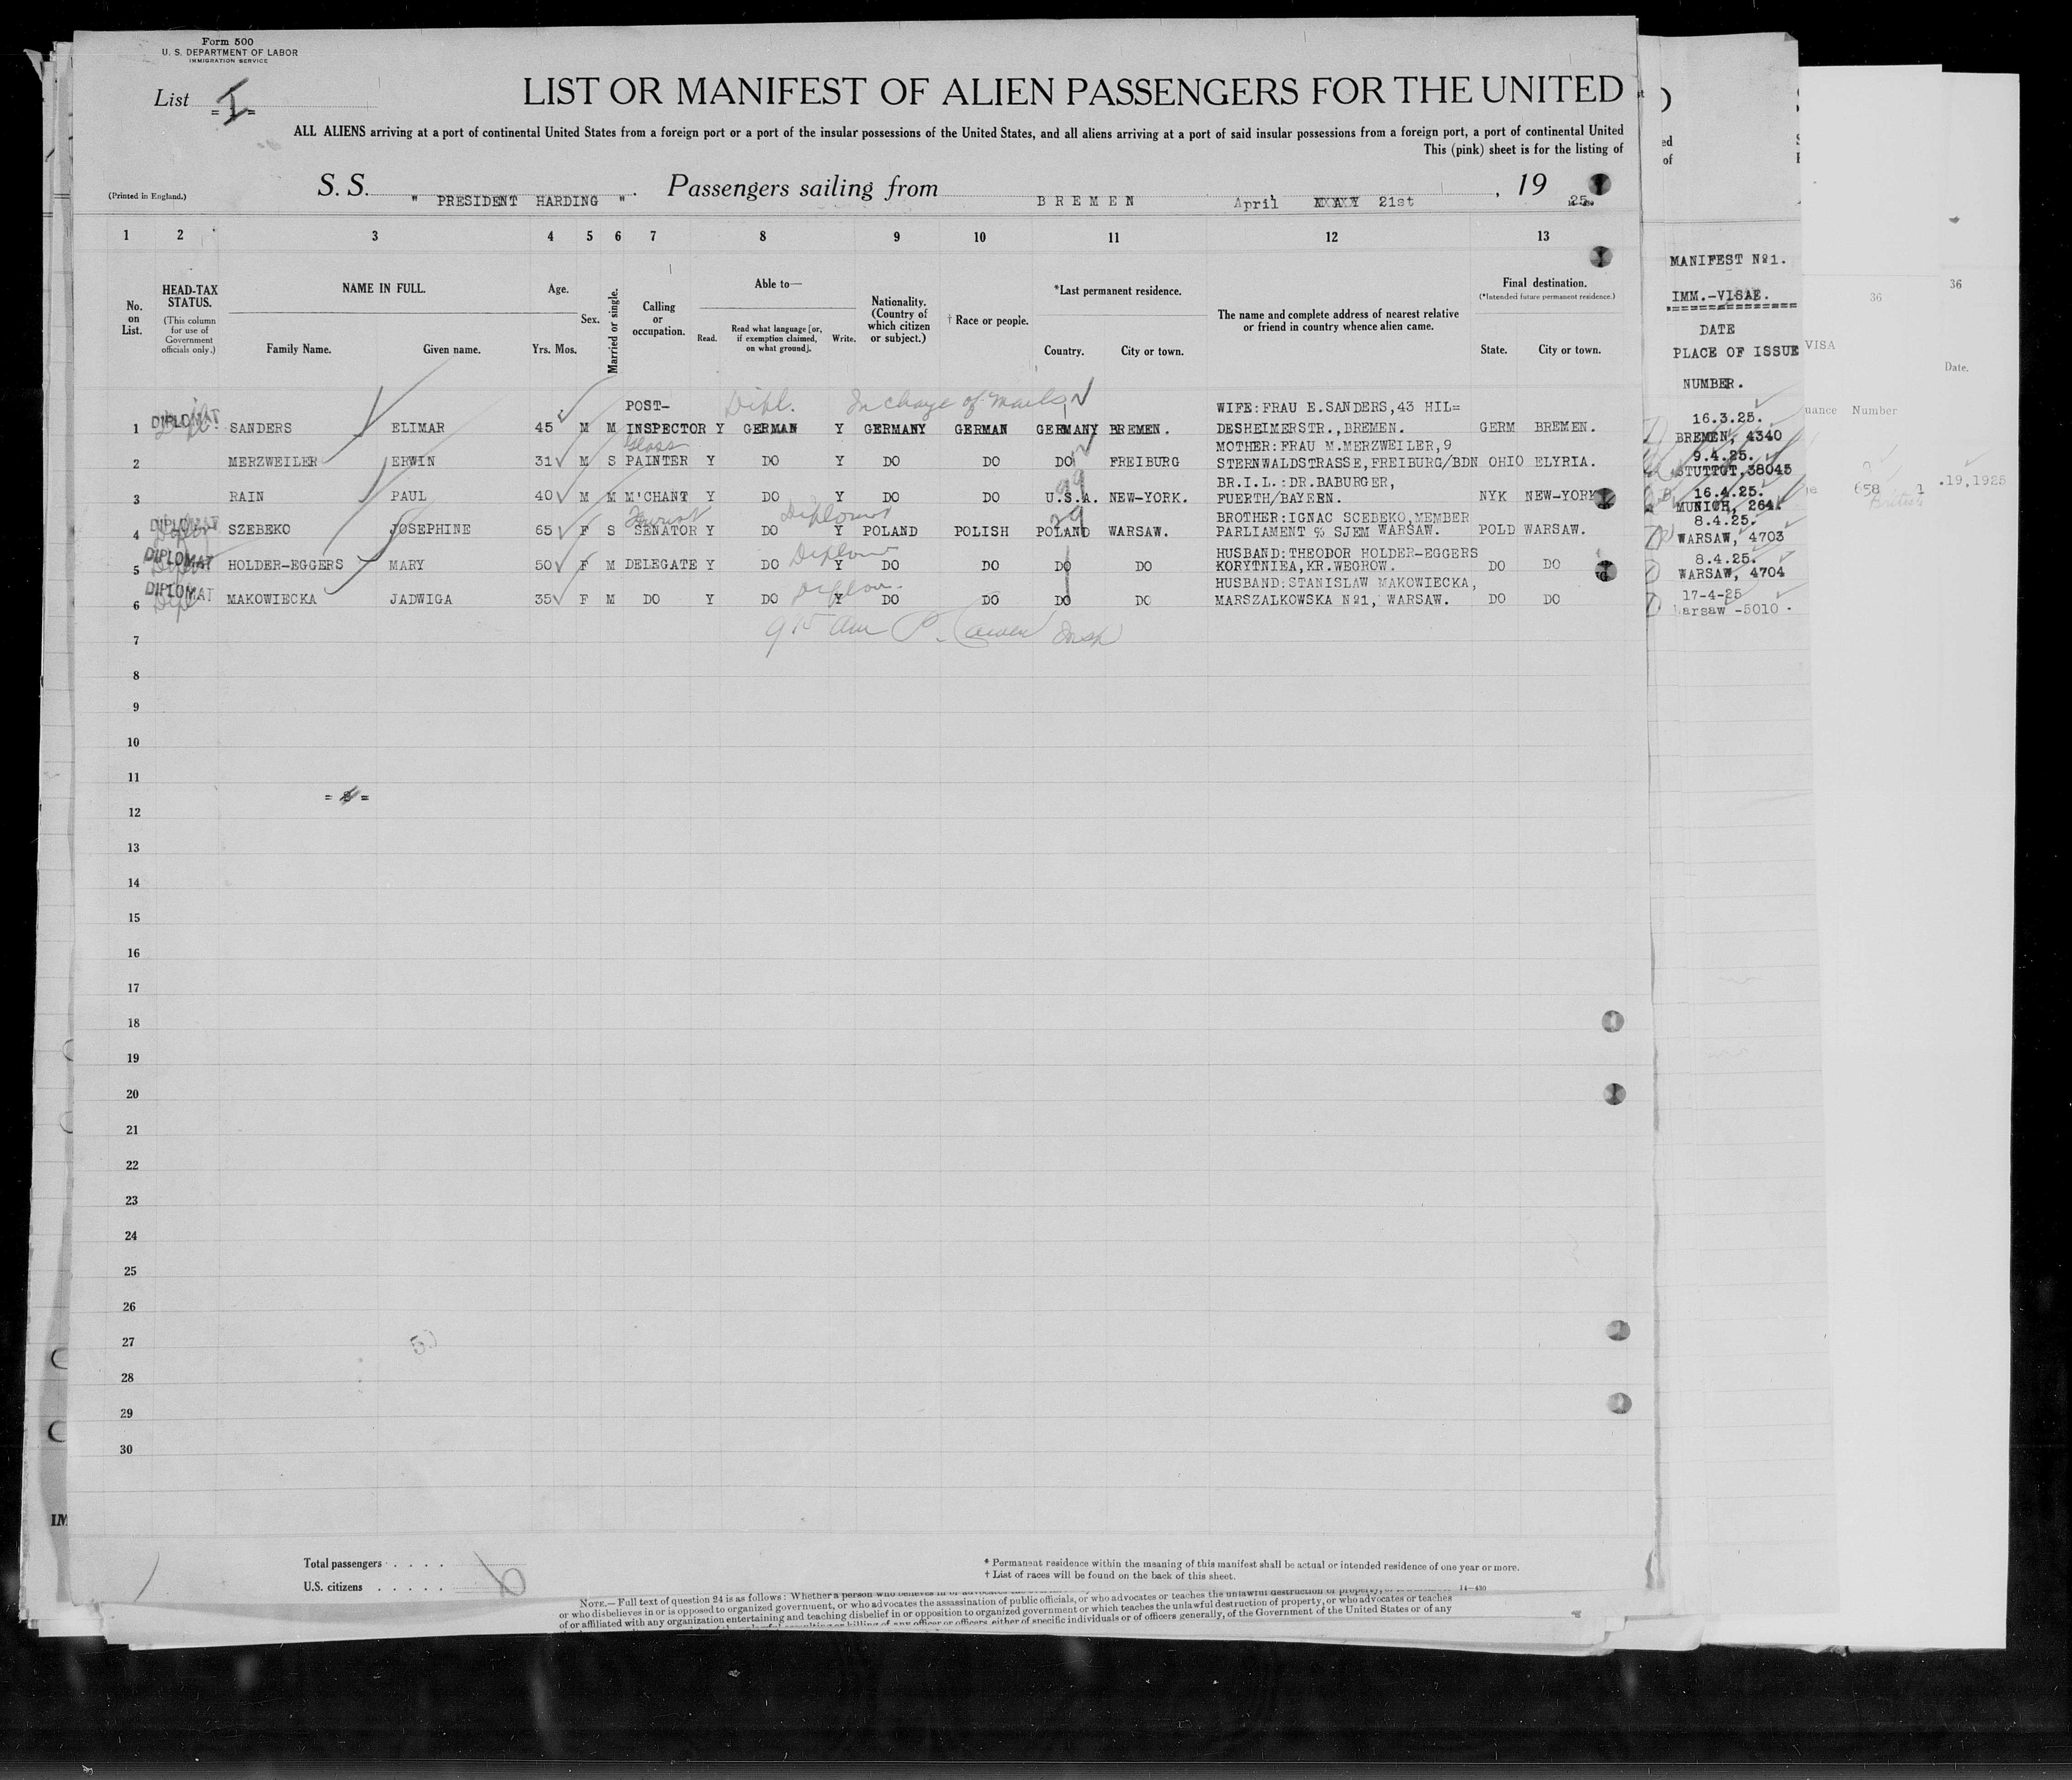 Form 500
U. S. DEPARTMENT OF LABOR
IMMIGRATION SERVICE
List = I =
LIST OR MANIFEST OF ALIEN PASSENGERS FOR THE UNITED
ALL ALIENS arriving at a port of continental United States from a foreign port or a port of the insular possessions of the United States, and all aliens arriving at a port of said insular possessions from a foreign port, a port of continental United
This (pink) sheet is for the listing of
(Printed in England.)
S. S. " PRESIDENT HARDING ". Passengers sailing from BREMEN April 21st, 19 25.
1 2 3 4 5 6 7 8 9 10 11 12 13
No. on List.
HEAD-TAX STATUS. (This column for use of Government officials only.)
NAME IN FULL. Family Name. Given name.
Age. Yrs. Mos.
Sex.
Married or single.
Calling or occupation.
Able to— Read. Read what language [or, if exemption claimed, on what ground]. Write.
Nationality. (Country of which citizen or subject.)
† Race or people.
*Last permanent residence. Country. City or town.
The name and complete address of nearest relative or friend in country whence alien came.
Final destination. (*Intended future permanent residence.) State. City or town.
POST- Dipl. In charge of mails WIFE:FRAU E.SANDERS,43 HIL=
1 DIPLOMAT SANDERS ELIMAR 45 M M INSPECTOR Y GERMAN Y GERMANY GERMAN GERMANY BREMEN. DESHEIMERSTR.,BREMEN. GERM BREMEN.
Glass MOTHER:FRAU M.MERZWEILER,9
2 MERZWEILER ERWIN 31 M S PAINTER Y DO Y DO DO DO FREIBURG STERNWALDSTRASSE,FREIBURG/BDN OHIO ELYRIA.
BR.I.L.:DR.BABURGER,
3 RAIN PAUL 40 M M M'CHANT Y DO Y DO DO U.S.A. NEW-YORK. FUERTH/BAYERN. NYK NEW-YORK
Tourist Diplomat BROTHER:IGNAC SCEBEKO,MEMBER
4 DIPLOMAT SZEBEKO JOSEPHINE 65 F S SENATOR Y DO Y POLAND POLISH POLAND WARSAW. PARLIAMENT % SJEM WARSAW. POLD WARSAW.
HUSBAND:THEODOR HOLDER-EGGERS
5 DIPLOMAT HOLDER-EGGERS MARY 50 F M DELEGATE Y DO Y DO DO DO DO KORYTNIEA,KR.WEGROW. DO DO
HUSBAND:STANISLAW MAKOWIECKA,
6 DIPLOMAT MAKOWIECKA JADWIGA 35 F M DO Y DO Y DO DO DO DO MARSZALKOWSKA Nº1, WARSAW. DO DO
7
8
9
10
11
12
13
14
15
16
17
18
19
20
21
22
23
24
25
26
27
28
29
30
Total passengers . . . .
U.S. citizens . . . . .
6
* Permanent residence within the meaning of this manifest shall be actual or intended residence of one year or more.
† List of races will be found on the back of this sheet.
14—430
NOTE.—Full text of question 24 is as follows: Whether a person who believes in or advocates
or who disbelieves in or is opposed to organized government, or who advocates the assassination of public officials, or who advocates or teaches the unlawful destruction of property, or who advocates or teaches
of or affiliated with any organization entertaining and teaching disbelief in or opposition to organized government or which teaches the unlawful destruction of property, or who advocates or teaches
either of specific individuals or of officers generally, of the Government of the United States or of any
MANIFEST Nº1.
IMM.-VISAE.
DATE
PLACE OF ISSUE
NUMBER.
16.3.25.
BREMEN, 4340
9.4.25.
STUTTGT,38045
16.4.25.
MUNICH, 2641
8.4.25.
WARSAW, 4703
8.4.25.
WARSAW, 4704
17-4-25
Warsaw -5010 -
36
VISA
Number
658
36
Date.
.19,1925